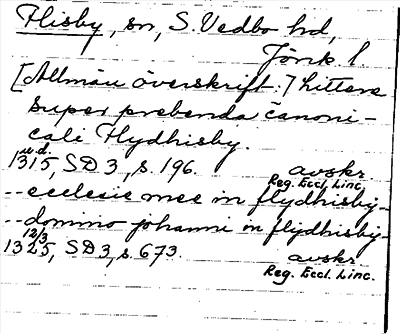 Flisby, sn, S. Vedbo hd,
Jönk. l.
[Allmän överskrift:] Littera
super prebenda canoni-
cali Flydhisby.
u.d.
1315, SD 3, s. 196. avskr.
Reg. Eccl. Linc.
-- ecclesie mee in flydhisby --
-- domino johanni in flijdhisby --
12/3
1325, SD 3, s. 673. avskr.
Reg. Eccl. Linc.